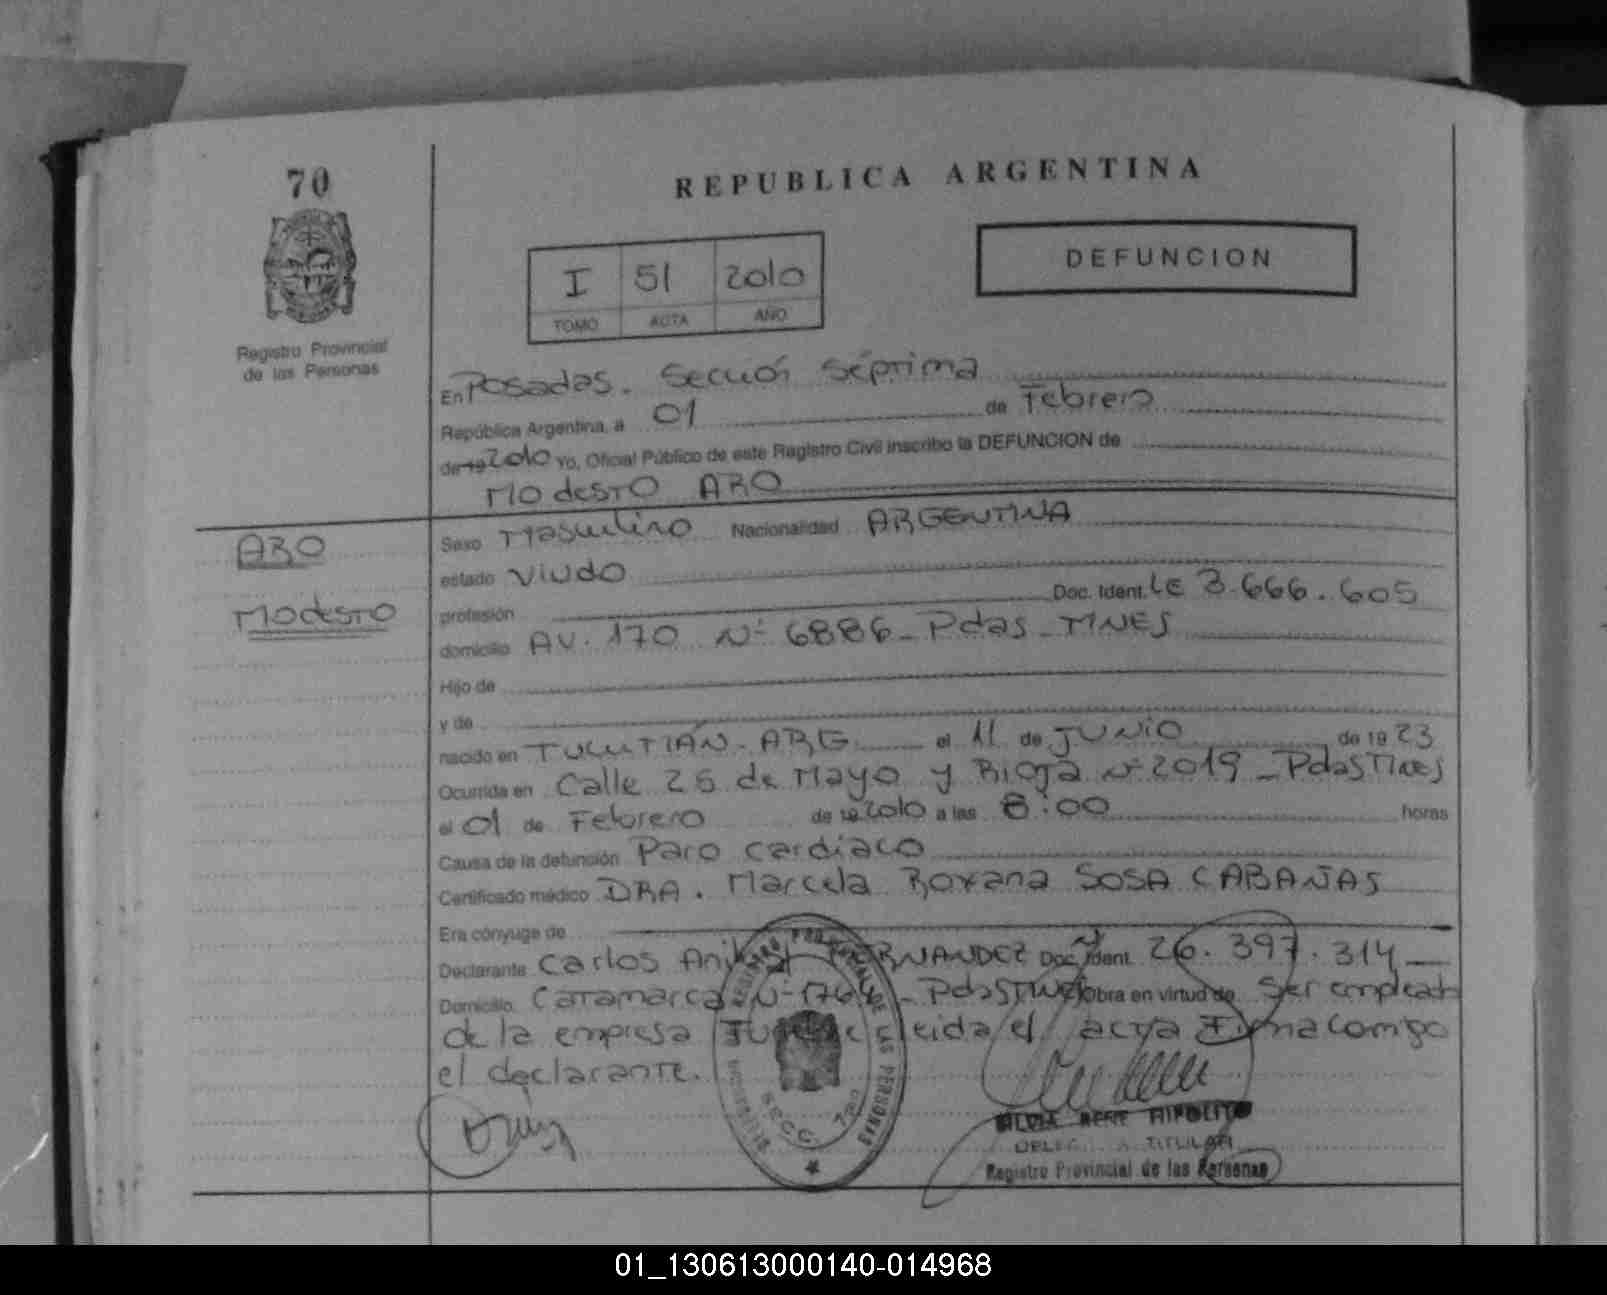 70
REPUBLICA ARGENTINA
DEFUNCION
I 51 2010
TOMO ACTA AÑO
Registro Provincial
de las Personas
En Posadas. Sección Séptima
República Argentina, a 01 de Febrero
de 19 2010 Yo, Oficial Público de este Registro Civil inscribo la DEFUNCION de
Modesto ARO
ARO
Modesto
Sexo Masculino Nacionalidad ARGENTINA
estado Viudo
profesión Doc. Ident. LE 3.666.605
domicilio AV. 170 Nº 6886 - Pdas - MNES
Hijo de
y de
nacido en TUCUMÁN - ARG el 11 de JUNIO de 19 23
Ocurrida en Calle 25 de Mayo y Rioja Nº 2019 - Pdas Mnes
el 01 de Febrero de 19 2010 a las 8:00 horas
Causa de la defunción Paro cardíaco
Certificado médico DRA. Marcela Roxana SOSA CABAÑAS
Era cónyuge de
Declarante Carlos FERNANDEZ Doc. Ident. 26.397.314
Domicilio Catamarca Nº - Pdas Mnes Obra en virtud de Ser empleado
de la empresa leida el acta Firma Conmigo
el declarante.
REGISTRO PROVINCIAL DE LAS PERSONAS
SECC. 7ma
SILVIA RENE HIPOLITO
DELEGADA TITULAR
Registro Provincial de las Personas
01_130613000140-014968